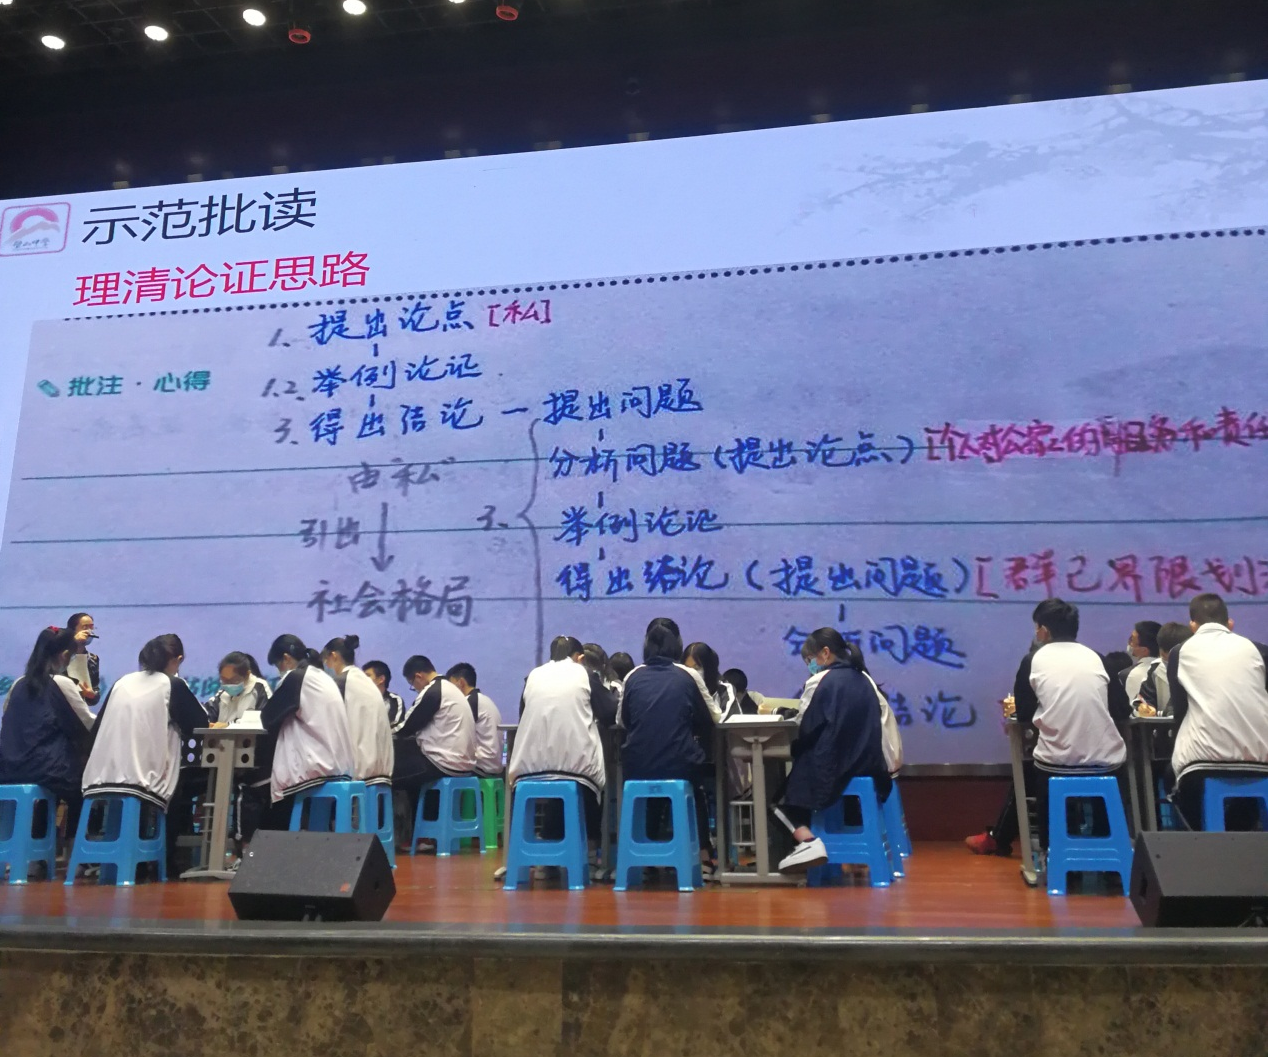 示范批读
理清论证思路
1. 提出论点 [私]
批注·心得
1.2. 举例论证
3. 得出结论 — 提出问题
分析问题(提出论点)[个人对公家
由“私”
引出
3.
举例论证
社会格局
得出结论(提出问题)[群己界限划
问题
结论